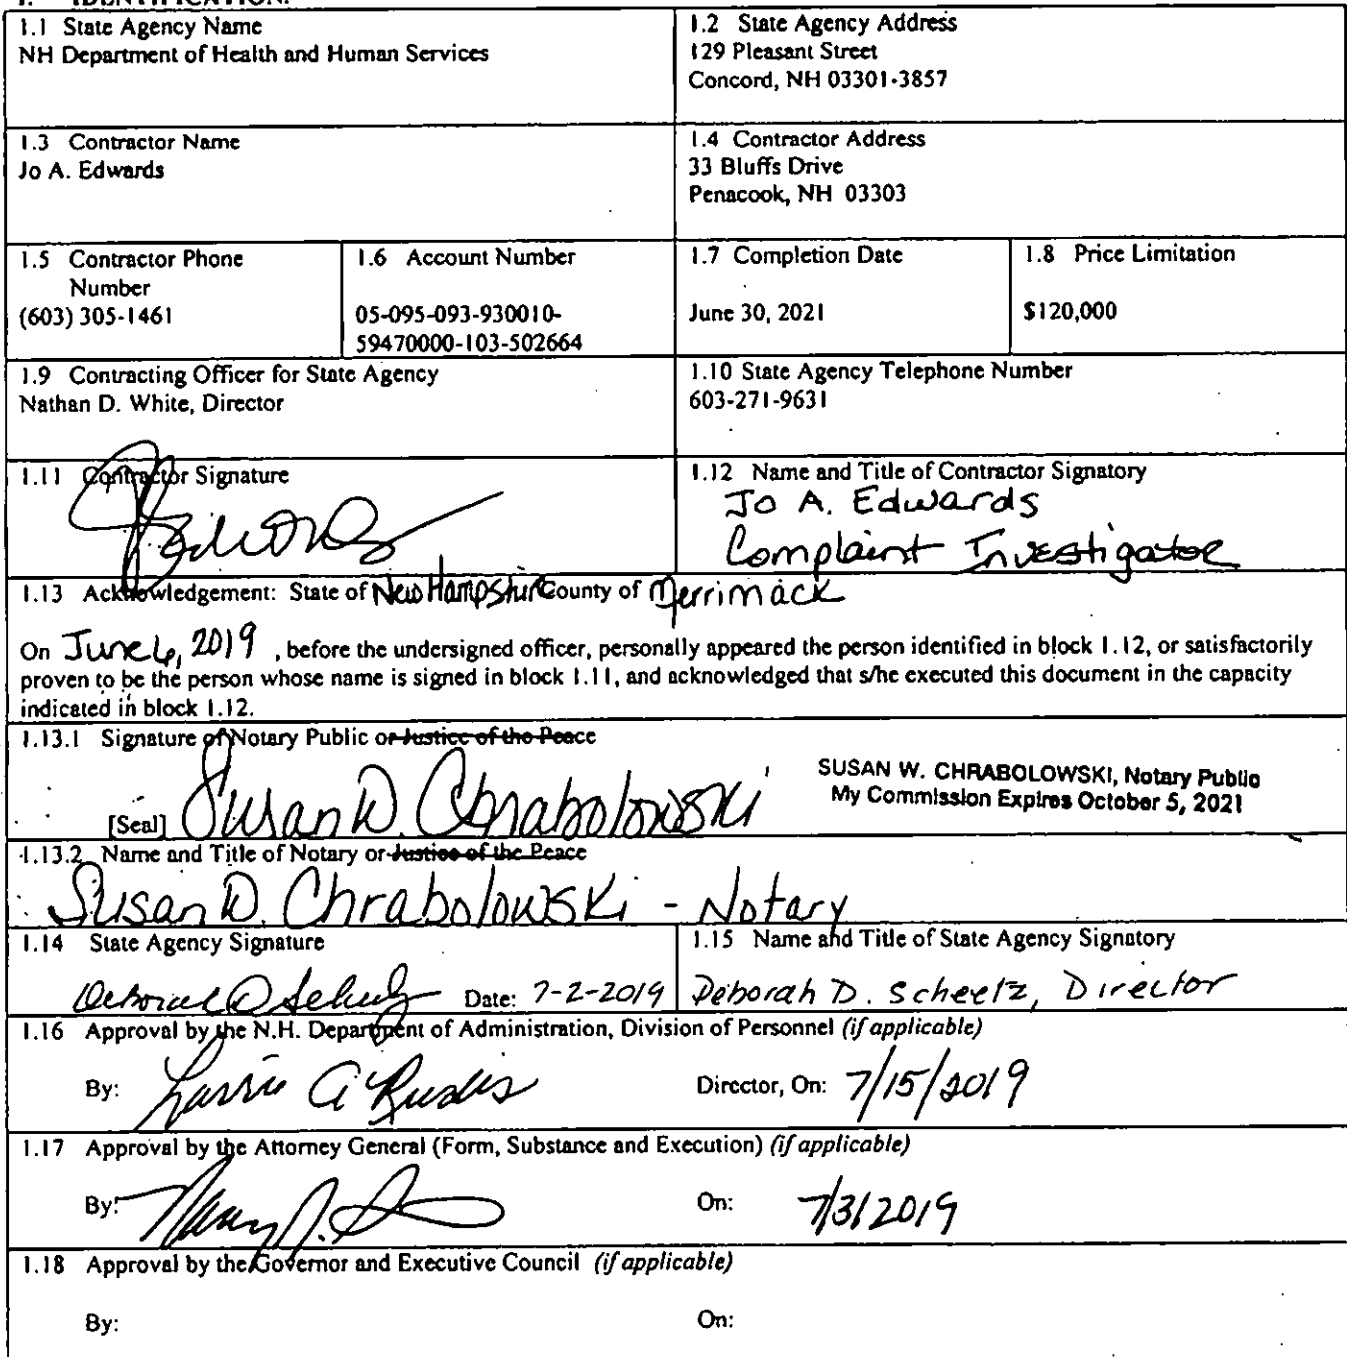 1. IDENTIFICATION.
1.1 State Agency Name
NH Department of Health and Human Services
1.2 State Agency Address
129 Pleasant Street
Concord, NH 03301-3857
1.3 Contractor Name
Jo A. Edwards
1.4 Contractor Address
33 Bluffs Drive
Penacook, NH 03303
1.5 Contractor Phone
Number
(603) 305-1461
1.6 Account Number
05-095-093-930010-
59470000-103-502664
1.7 Completion Date
June 30, 2021
1.8 Price Limitation
$120,000
1.9 Contracting Officer for State Agency
Nathan D. White, Director
1.10 State Agency Telephone Number
603-271-9631
1.11 Contractor Signature
1.12 Name and Title of Contractor Signatory
Jo A. Edwards
Complaint Investigator
1.13 Acknowledgement: State of New Hampshire County of Merrimack
On June 6, 2019, before the undersigned officer, personally appeared the person identified in block 1.12, or satisfactorily
proven to be the person whose name is signed in block 1.11, and acknowledged that s/he executed this document in the capacity
indicated in block 1.12.
1.13.1 Signature of Notary Public or Justice of the Peace
SUSAN W. CHRABOLOWSKI, Notary Public
My Commission Expires October 5, 2021
[Seal] Susan W. Chrabolowski
1.13.2 Name and Title of Notary or Justice of the Peace
Susan W. Chrabolowski - Notary
1.14 State Agency Signature
Date: 7-2-2019
1.15 Name and Title of State Agency Signatory
Deborah D. Scheetz, Director
1.16 Approval by the N.H. Department of Administration, Division of Personnel (if applicable)
By: Director, On: 7/15/2019
1.17 Approval by the Attorney General (Form, Substance and Execution) (if applicable)
By: On: 7/3/2019
1.18 Approval by the Governor and Executive Council (if applicable)
By: On: